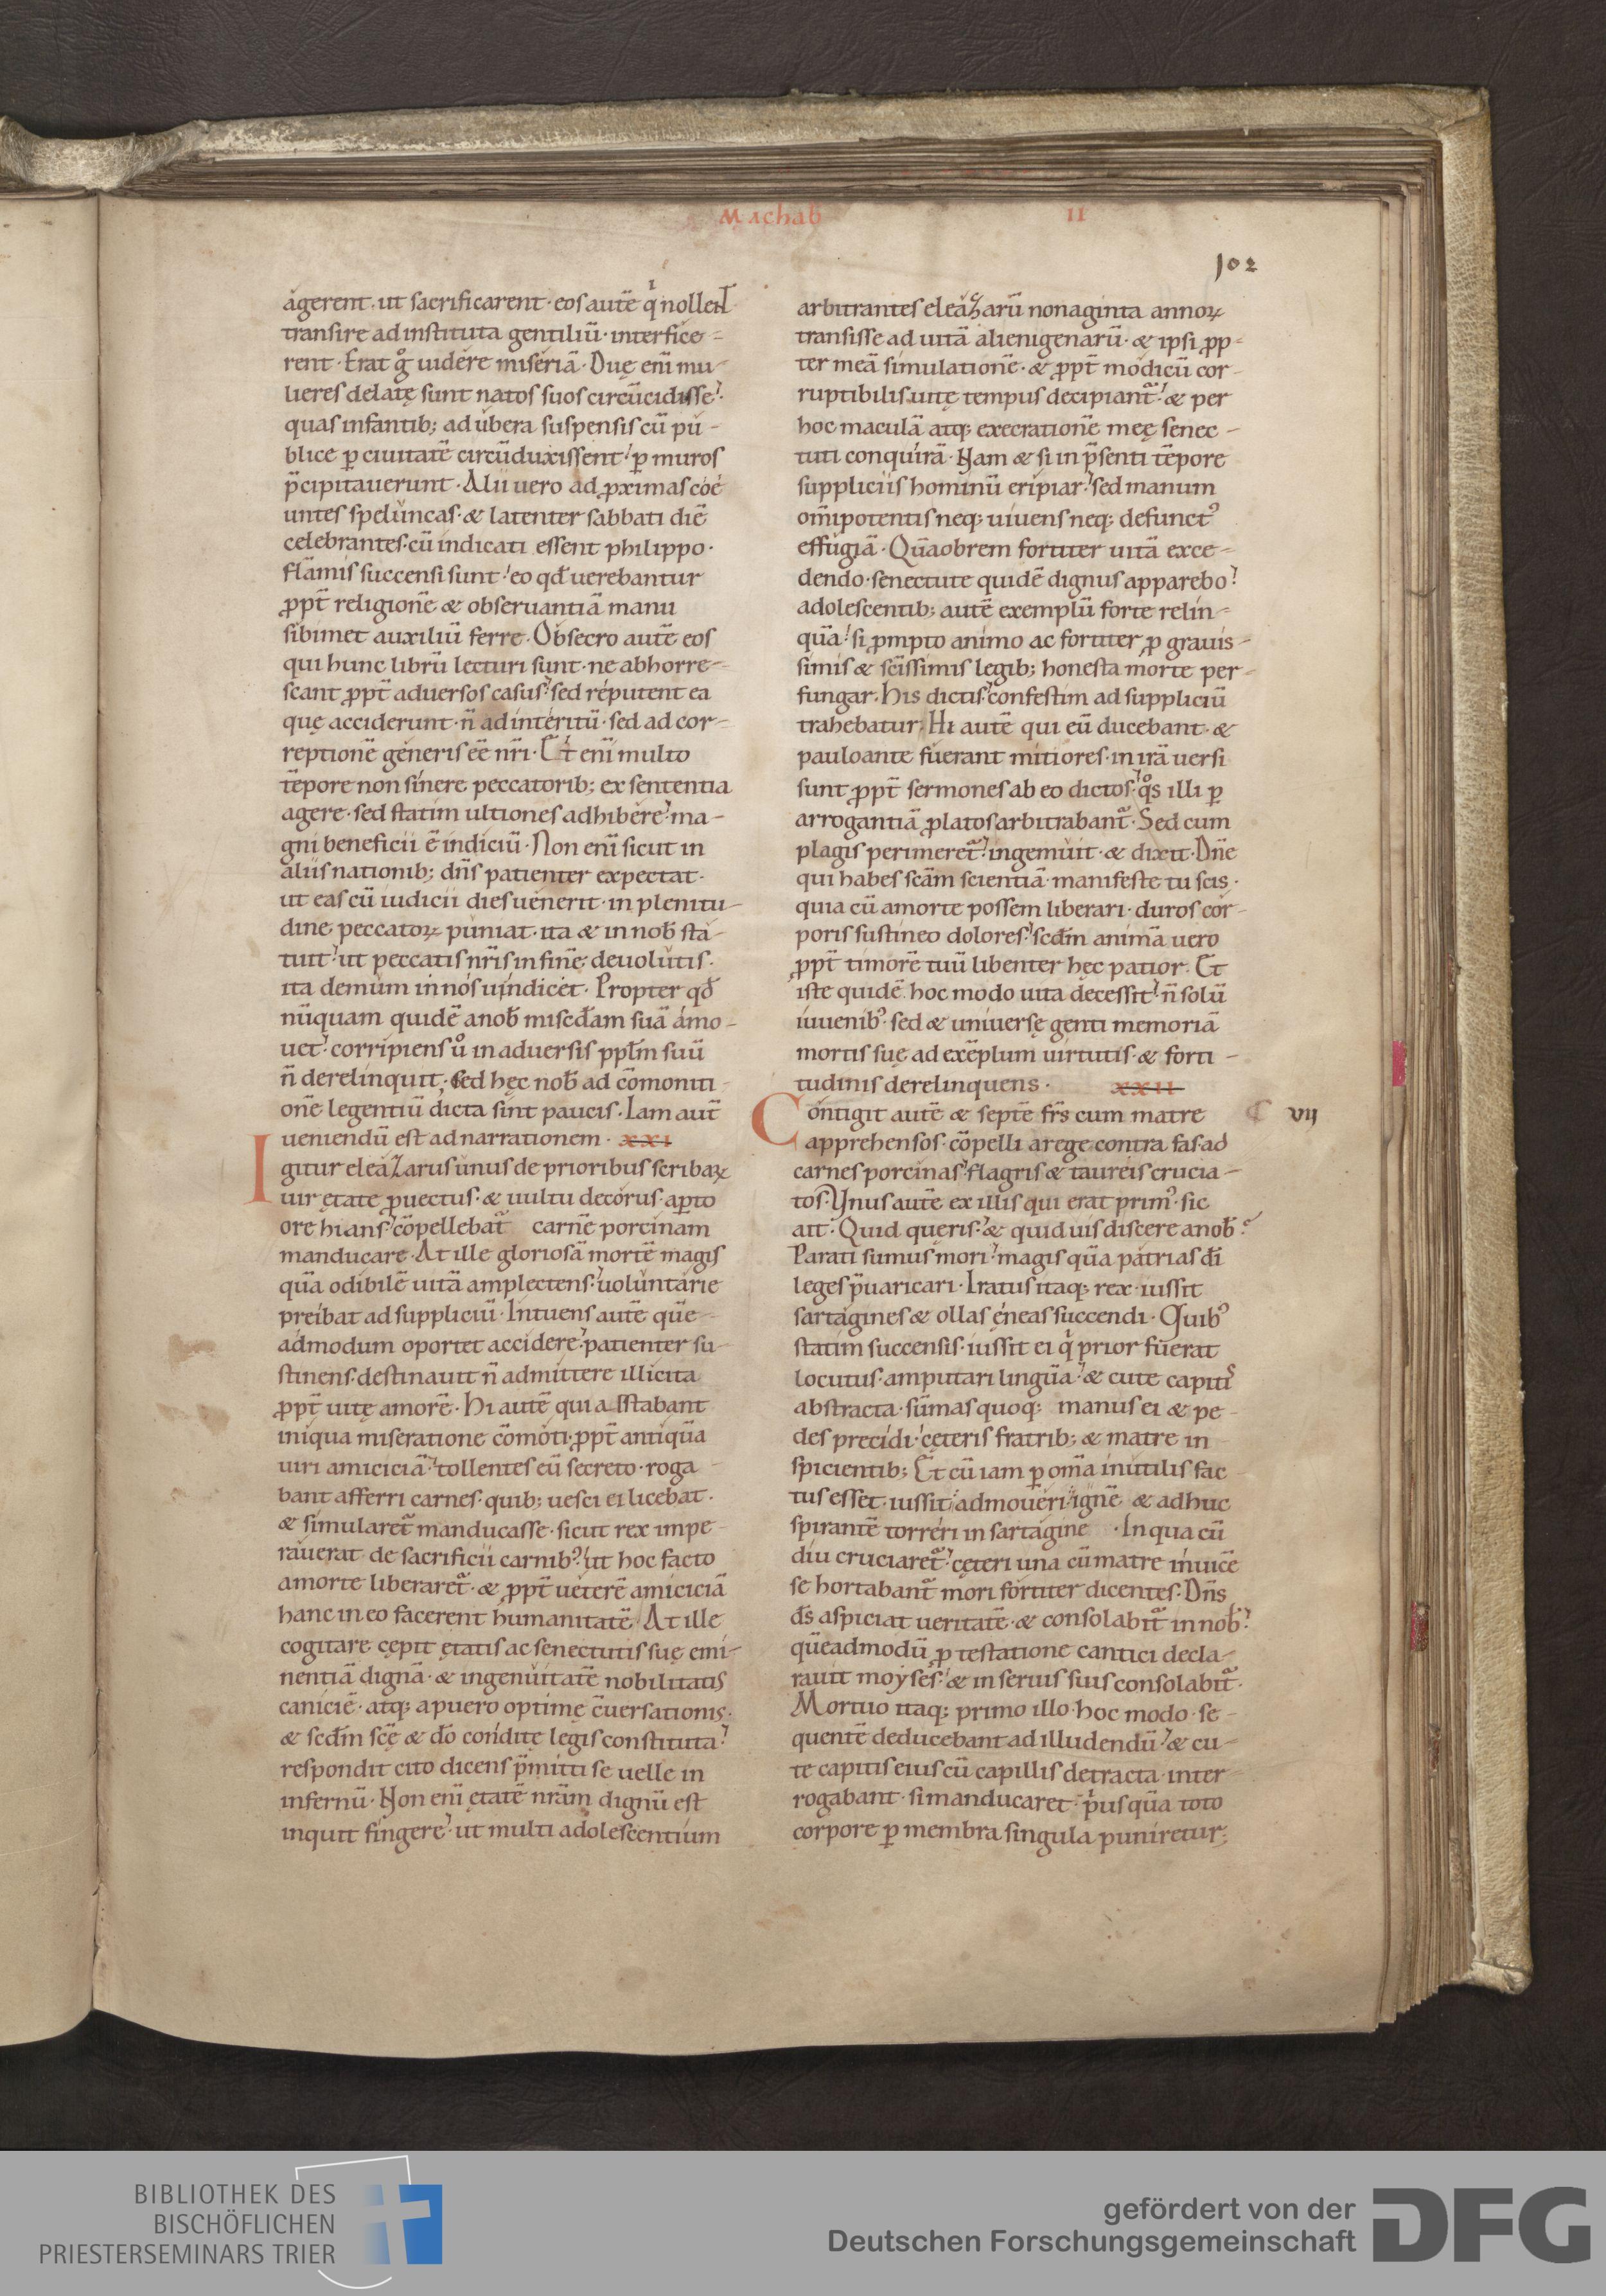 Machab̄ II
102
agerent · ut sacrificarent · eos autē q̇ nollent
transire ad instituta gentiliū · interfice-
rent · Erat g̊ uidere miseriā · Duę eni̅ mu-
lieres delatę sunt natos suos circūcidisse ·
quas infantib; ad ubera suspensis cū pu-
blice ꝑ ciuitatē circūduxissent · ꝑ muros
p̄cipitauerunt · Alii uero ad ꝓximas coe
untes speluncas · & latenter sabbati diē
celebrantes · cū indicati essent philippo ·
flāmis succensi sunt · eo qđ uerebantur
ꝓpt̄ religionē & obseruantiā manu
sibimet auxiliū ferre · Obsecro autē eos
qui hunc librū lecturi sunt · ne abhorre-
scant ꝓpt̄ aduersos casus · sed reputent ea
quę acciderunt · n̄ ad interitū · sed ad cor-
reptionē generis eē nr̄i · Et eni̅ multo
tēpore non sinere peccatorib; ex sententia
agere · sed statim ultiones adhibere · ma-
gni beneficii ē indiciū · Non eni̅ sicut in
aliis nationib; dn̄s patienter expectat ·
ut eas cū iudicii dies uenerit · in plenitu-
dine peccatoꝝ puniat · ita & in nob̄ sta-
tuit · ut peccatis nr̄is in finē deuolutis ·
ita demum in nos uindicet · Propter qđ
nūquam quidē a nob̄ misc̄đam suā amo-
uet · corripiens ů in aduersis ppl̄m suū
n̄ derelinquit · Sed hęc nob̄ ad cōmoniti-
onē legentiū dicta sint paucis · Iam aut̄
ueniendū est ad narrationem · XXI
Igitur eleaZarus unus de prioribus scribaꝝ
uir ętate ꝓuectus · & uultu decorus · aꝑto
ore hians · cōpellebat᷑ carnē porcinam
manducare · At ille gloriosā mortē magis
quā odibilē uitā amplectens · uoluntarie
preibat ad suppliciū · Intuens autē quē-
admodum oportet accidere · patienter su-
stinens · destinauit n̄ admittere illicita
ꝓpt̄ uitę amorē · Hi autē qui astabant
iniqua miseratione cōmoti · ꝓpt̄ antiquā
uiri amiciciā · tollentes eū secreto · roga-
bant afferri carnes · quib; uesci ei licebat ·
& simularet᷑ manducasse · sicut rex impe-
rauerat de sacrificii carnibꝰ · ut hoc facto
a morte liberaret᷑ · & ꝓpt̄ ueterē amiciciā
hanc in eo facerent humanitatē · At ille
cogitare cępit ętatis ac senectutis suę emi-
nentiā dignā · & ingenuitatē nobilitatis
caniciē · atq; a puero optimę c̄uersationis ·
& sc̄đm sc̄ę & dō conditę legis constituta ·
respondit cito dicens p̄mitti se uelle in
infernū · Non eni̅ ętatē nr̄am dignū est
inquit fingere · ut multi adolescentium
arbitrantes eleaZarū nonaginta annoꝝ
transisse ad uitā alienigenarū · & ipsi ꝓp-
ter meā simulationē · & ꝓpt̄ modicū cor-
ruptibilis uitę tempus decipiant᷑ · & per
hoc maculā atq; execrationē meę senec-
tuti conquirā · Nam & si in p̄senti tēpore
suppliciis hominū eripiar · sed manum
om̄ipotentis neq; uiuens neq; defunctꝰ
effugiā · Quāobrem fortiter uitā exce-
dendo · senectute quidē dignus apparebo ·
adolescentib; autē exemplū forte relin-
quā · si ꝓmpto animo ac fortiter ꝓ grauis-
simis & sc̄issimis legib; honesta morte per-
fungar · His dictis · confestim ad suppliciū
trahebatur · Hi autē qui eū ducebant · &
pauloante fuerant mitiores · in irā uersi
sunt ꝓpt̄ sermones ab eo dictos · q̊s illi ꝑ
arrogantiā ꝓlatos arbitrabant᷑ · Sed cum
plagis perimeret᷑ · ingemuit · & dixit · Dn̄e
qui habes sc̄am scientiā · manifeste tu scis ·
quia cū a morte possem liberari · duros cor-
poris sustineo dolores · sc̄đm animā uero
ꝓpt̄ timorē tuū libenter hęc patior · Et
iste quidē hoc modo uita decessit · n̄ solū
iuuenibꝰ · sed & uniuersę genti memoriā
mortis suę ad exēplum uirtutis · & forti-
tudinis derelinquens · XXII
Contigit autē & septē fr̄s cum matre
VII
apprehensos · cōpelli a rege contra fas · ad
carnes porcinas · flagris & taureis crucia-
tos · Vnus autē ex illis qui erat primꝰ · sic
ait · Quid queris · & quid uis discere a nob̄ ·
Parati sumus mori · magis quā patrias dī
leges p̄uaricari · Iratus itaq; rex · iussit
sartagines & ollas ęneas succendi · Quibꝰ
statim succensis · iussit ei q̇ prior fuerat
locutus · amputari linguā · & cute capitis
abstracta · sūmas quoq; manus ei & pe-
des precidi · cęteris fratrib; & matre in-
spicientib; Et cū iam ꝑ om̄a inutilis fac-
tus esset · iussit admoueri ignē & adhuc
spirantē torreri in sartagine · In qua cū
diu cruciaret᷑ · cęteri una cū matre inuicē
se hortabant᷑ mori fortiter dicentes · Dn̄s
dś aspiciat ueritatē · & consolabit᷑ in nob̄ ·
quēadmodū ꝓtestatione cantici decla-
rauit moyses · & in seruis suis consolabit᷑ ·
Mortuo itaq; primo illo · hoc modo · se-
quentē deducebant ad illudendū · & cu-
te capitis eius cū capillis detracta · inter-
rogabant · si manducaret · p̍usquā toto
corpore ꝑ membra singula puniretur;
BIBLIOTHEK DES
BISCHÖFLICHEN
PRIESTERSEMINARS TRIER
gefördert von der
Deutschen Forschungsgemeinschaft
DFG